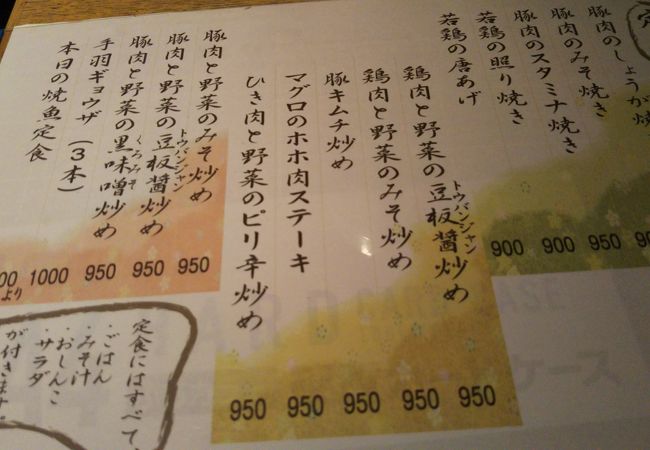 定
豚肉のしょうが焼
豚肉のみそ焼き
豚肉のスタミナ焼き 950
若鶏の照り焼き 900
若鶏の唐あげ 900
鶏肉と野菜の豆板醤トウバンジャン炒め 950
鶏肉と野菜のみそ炒め 950
豚キムチ炒め 950
マグロのホホ肉ステーキ 950
ひき肉と野菜のピリ辛炒め 950
豚肉と野菜のみそ炒め 950
豚肉と野菜の豆板醤トウバンジャン炒め 950
豚肉と野菜の黒味噌くろみそ炒め 950
手羽ギョウザ（3本） 1000
本日の焼魚定食 00より
定食にはすべて、
・ごはん
・みそ汁
・おしんこ
・サラダ
が付きます。